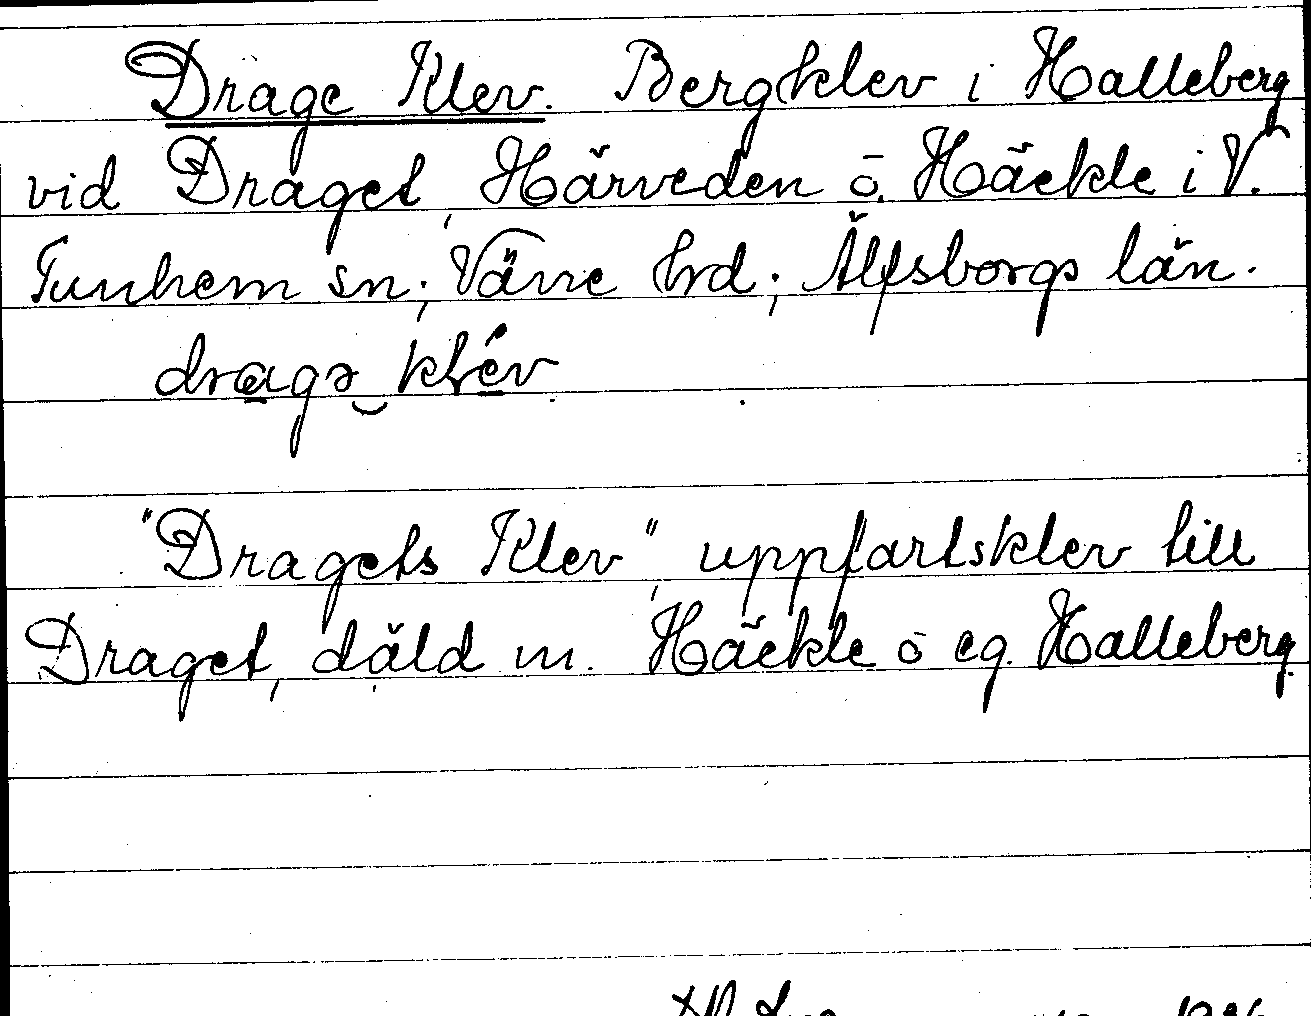 Drage Klev. Bergklev i Halleberg
vid Draget, Härveden o. Häckle i V.
Tunhem sn; Väne hrd; Älfsborgs län.
dragə klév
"Dragets Klev", uppfartsklev till
Draget, däld m. Häckle o eg. Halleberg.